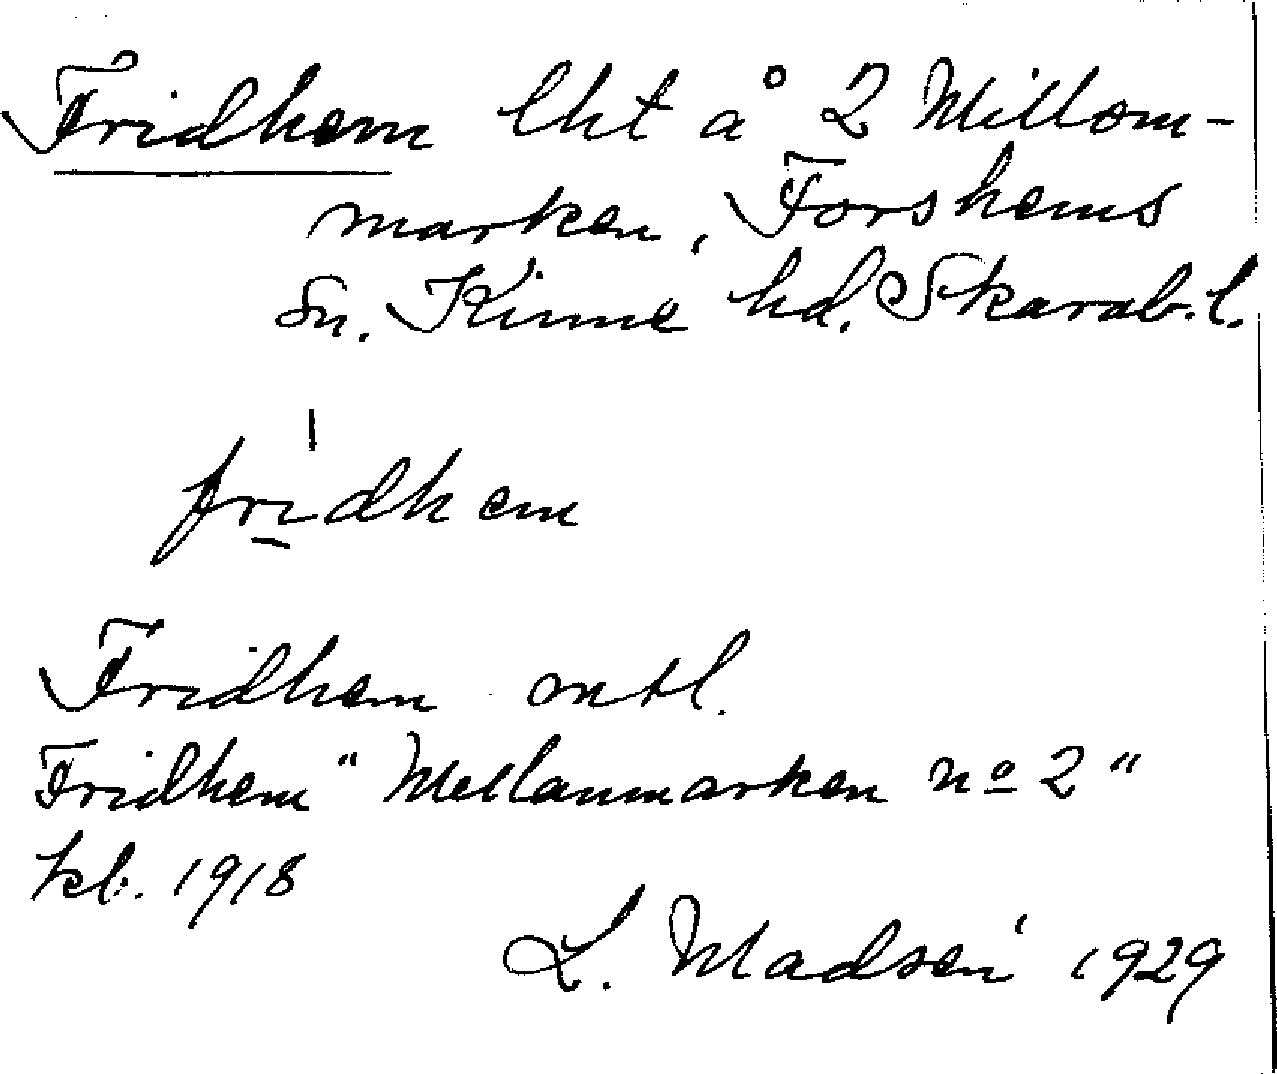 Fridhem lht å 2 Mellom-
marken, Forshems
Sn. Kinne hd. Skarab. l.
fridhem
Fridhem ontl.
Fridhem "Mellanmarken nº 2"
kb. 1918
L. Madsén 1929